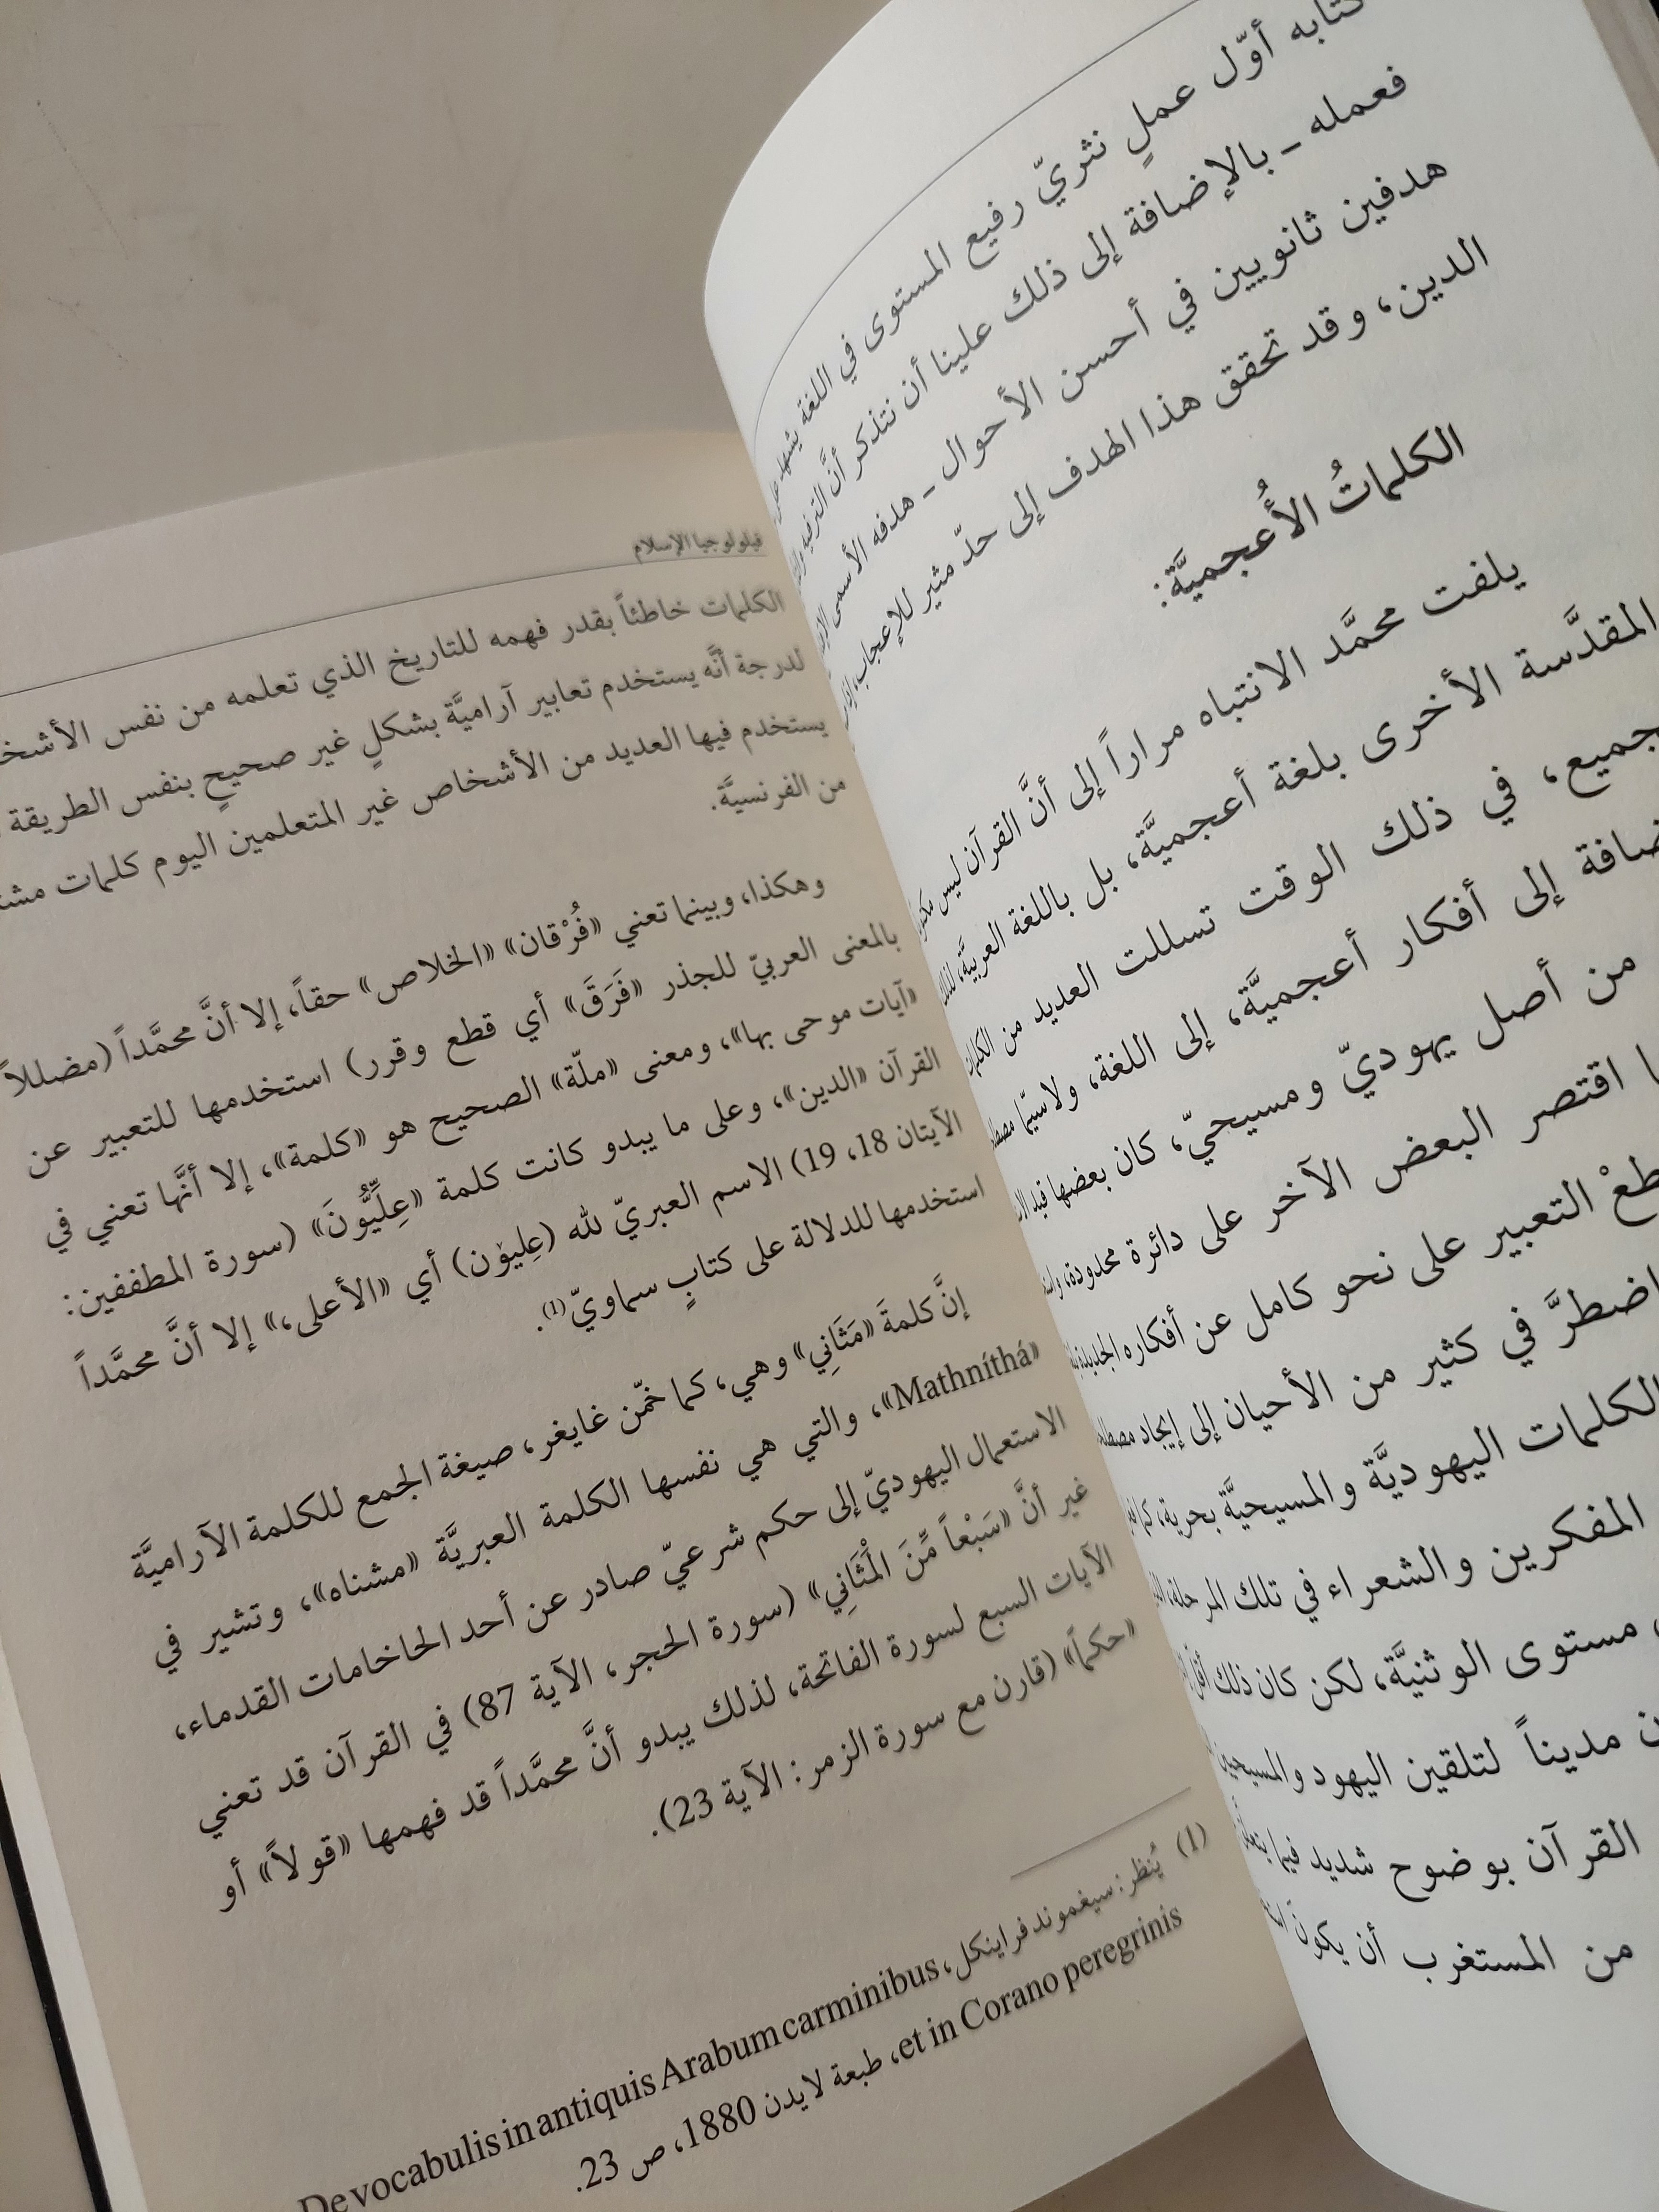 كتابه أوّل عملٍ نثريّ رفيع المستوى في اللغة يشهد على
فعمله ـ بالإضافة إلى ذلك علينا أن نتذكر أنَّ الترفيه
هدفين ثانويين في أحسن الأحوال ـ هدفه الأسمى
الدين، وقد تحقق هذا الهدف إلى حدّ مثير للإعجاب،
الكلماتُ الأعجميَّة:
يلفت محمَّد الانتباه مراراً إلى أنَّ القرآن ليس
المقدَّسة الأخرى بلغة أعجميَّة، بل باللغة العربيَّة،
في ذلك الوقت تسللت العديد من
إلى أفكار أعجميَّة، إلى اللغة، ولاسيّما
من أصل يهوديّ ومسيحيّ، كان بعضها قيد
اقتصر البعض الآخر على دائرة محدودة،
التعبير على نحو كامل عن أفكاره الجديدة
اضطرَّ في كثير من الأحيان إلى إيجاد
الكلمات اليهوديَّة والمسيحيَّة بحرية،
المفكرين والشعراء في تلك المرحلة
مستوى الوثنيَّة، لكن كان ذلك
مديناً لتلقين اليهود والمسيحيين
القرآن بوضوح شديد فيما
من المستغرب أن يكون
فيلولوجيا الإسلام
الكلمات خاطئاً بقدر فهمه للتاريخ الذي تعلمه من نفس
لدرجة أنَّه يستخدم تعابير آراميَّة بشكلٍ غير صحيحٍ بنفس الطريقة
يستخدم فيها العديد من الأشخاص غير المتعلمين اليوم كلمات
من الفرنسيَّة.
وهكذا، وبينما تعني «فُرْقان» «الخلاص» حقاً، إلا أنَّ محمَّداً (مضللاً
بالمعنى العربيّ للجذر «فَرَقَ» أي قطع وقرر) استخدمها للتعبير عن
«آيات موحى بها»، ومعنى «ملّة» الصحيح هو «كلمة»، إلا أنَّها تعني في
القرآن «الدين»، وعلى ما يبدو كانت كلمة «عِلِّيُّونَ» (سورة المطففين:
الآيتان 18، 19) الاسم العبريّ لله (عِليوْن) أي «الأعلى،» إلا أنَّ محمَّداً
استخدمها للدلالة على كتابٍ سماويّ(1).
إنَّ كلمةَ «مَثَانِي» وهي، كما خمّن غايغر، صيغة الجمع للكلمة الآراميَّة
«Mathníthá»، والتي هي نفسها الكلمة العبريَّة «مشناه»، وتشير في
الاستعمال اليهوديّ إلى حكم شرعيّ صادر عن أحد الحاخامات القدماء،
غير أنَّ «سَبْعاً مِّنَ الْمَثَانِي» (سورة الحجر، الآية 87) في القرآن قد تعني
الآيات السبع لسورة الفاتحة، لذلك يبدو أنَّ محمَّداً قد فهمها «قولاً» أو
«حكماً» (قارن مع سورة الزمر: الآية 23).
(1) يُنظر: سيغموند فراينكل، De vocabulis in antiquis Arabum carminibus
et in Corano peregrinis، طبعة لايدن 1880، ص 23.